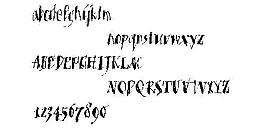 abcdefghijklm
nopqrstuvwxyz
ABCDEFGHIJKLM
NOPQRSTUVWXYZ
1234567890